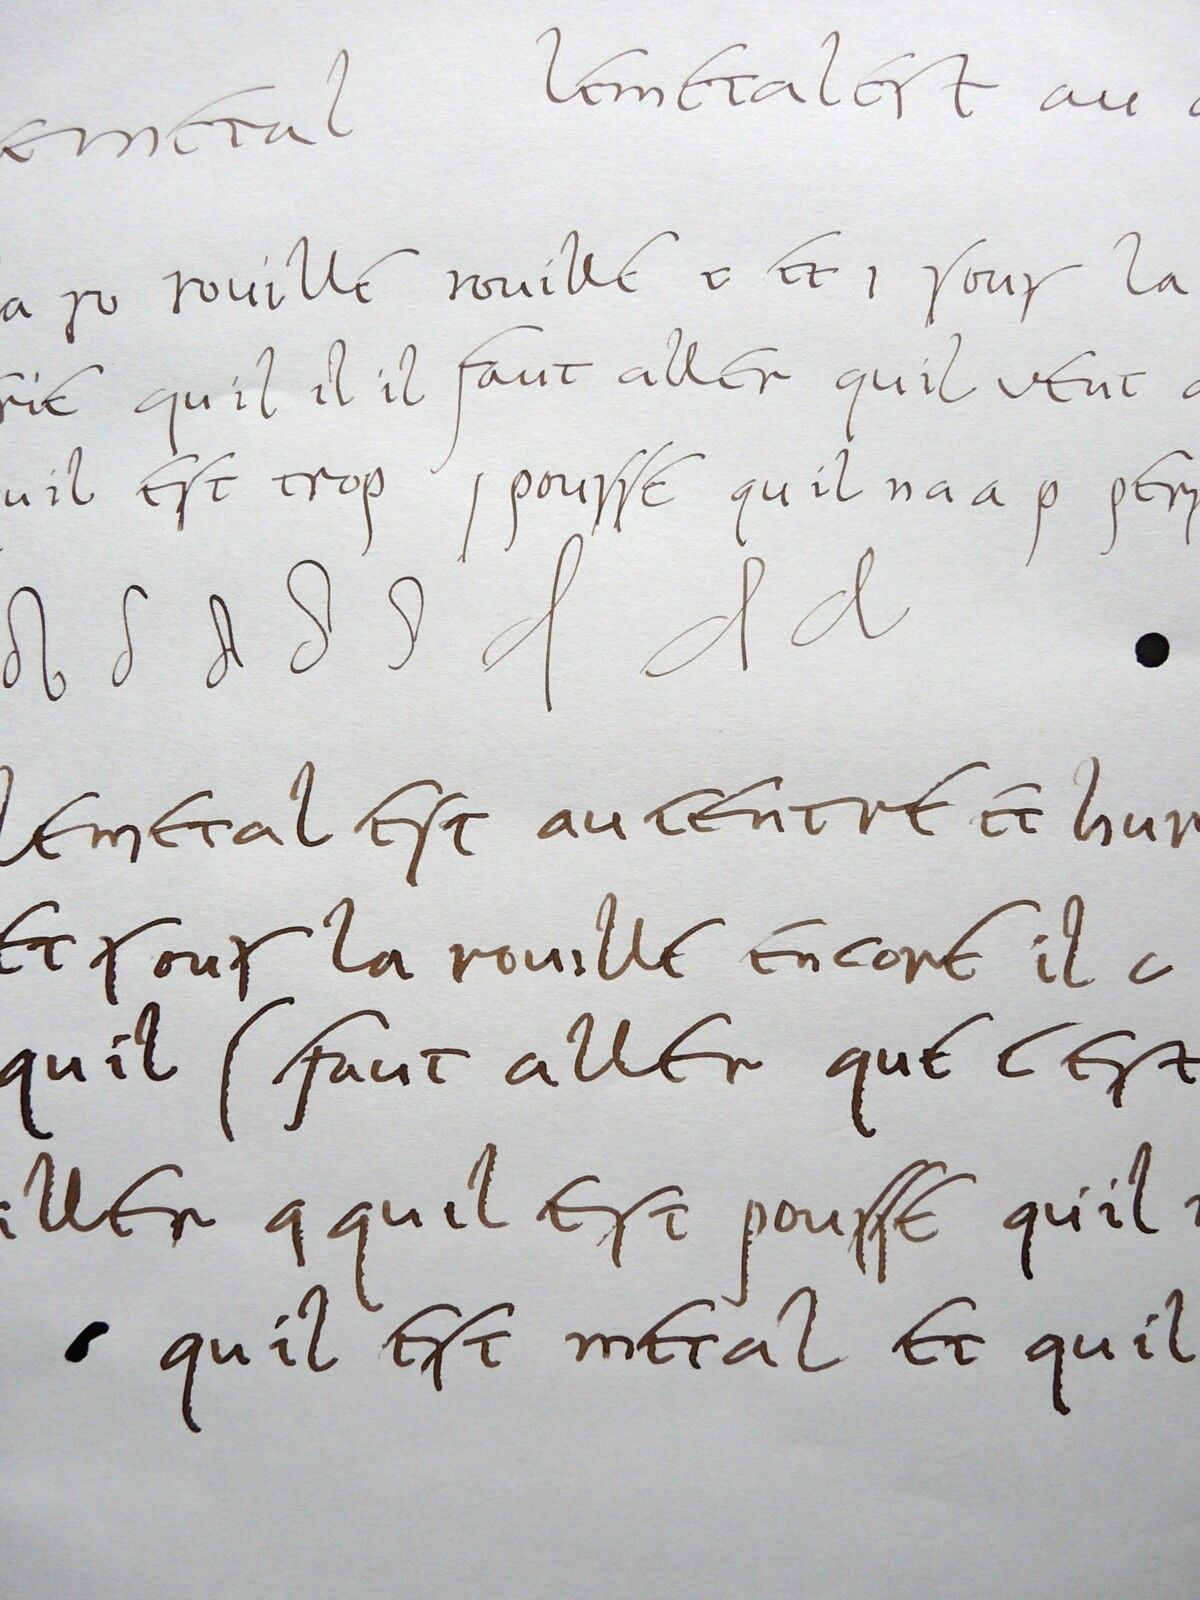 emetal lemetalest au
a ro rouille rouille e et r rour la
rie quil il il faut aller quil vent
uil est trop pousse quil n a a p
d d d d d d
lemetal est au centre et hur
et rour la rouille encore il c
quil faut aller que c est
aller q quil est pousse quil
quil est metal et quil